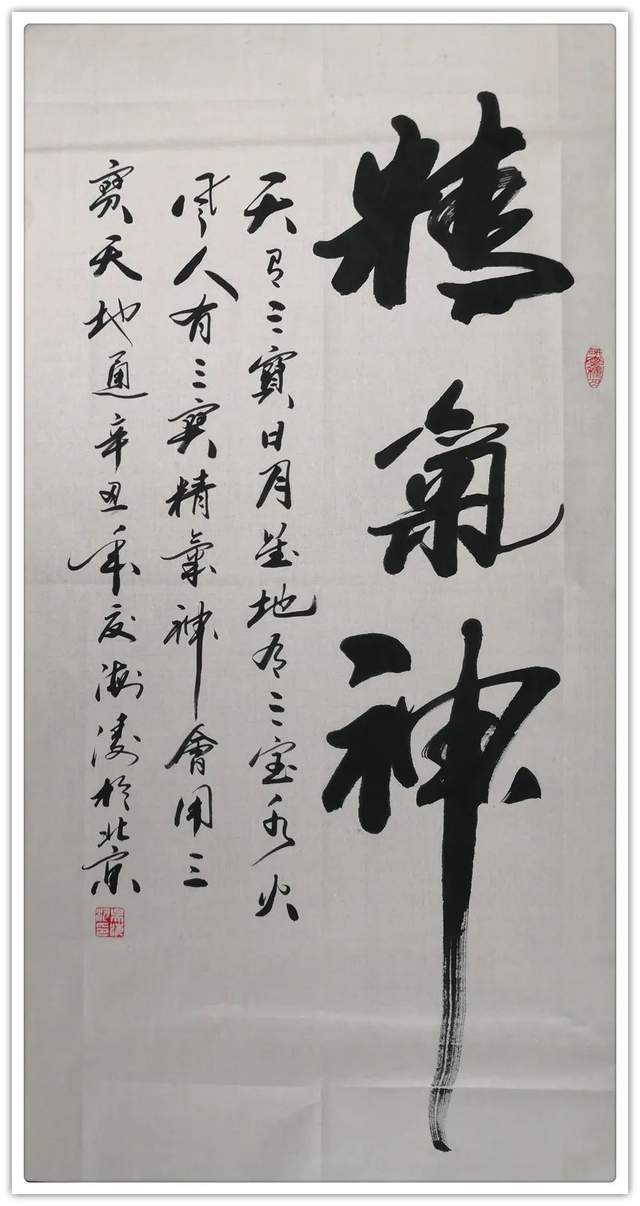 精氣神
天有三寳日月星地有三宝水火
風人有三寳精氣神會用三
寳天地通辛丑年夏澍凌於北京